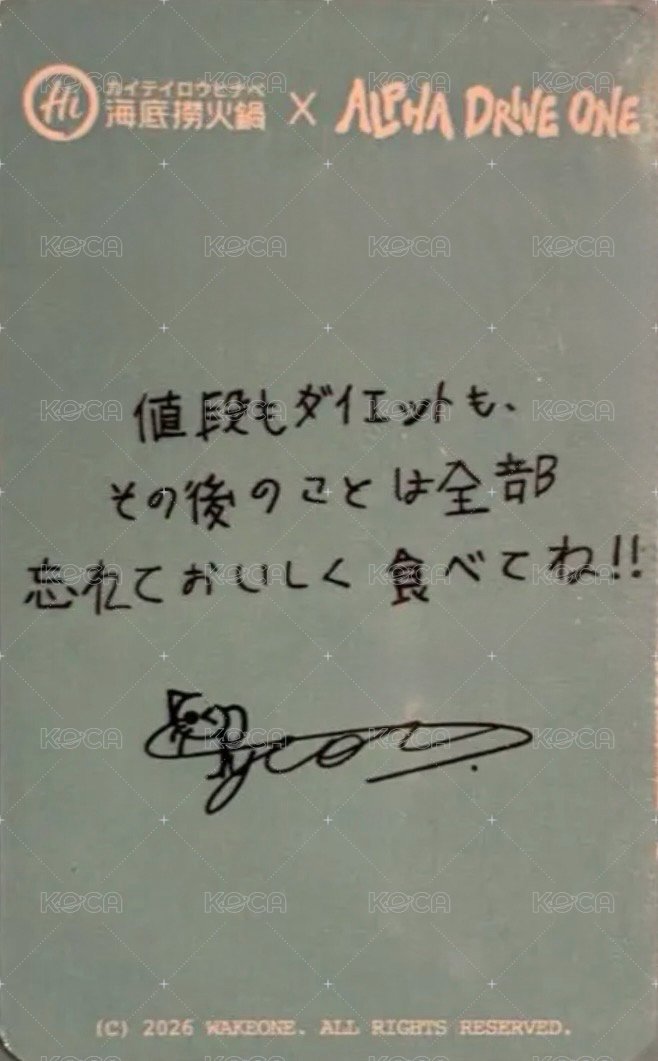 Hi カイテイロウヒナベ 海底捞火鍋 X ALPHA DRIVE ONE
値段もダイエットも、
その後のことは全部
忘れておいしく食べてね!!
(C) 2026 WAKEONE. ALL RIGHTS RESERVED.
KOCA